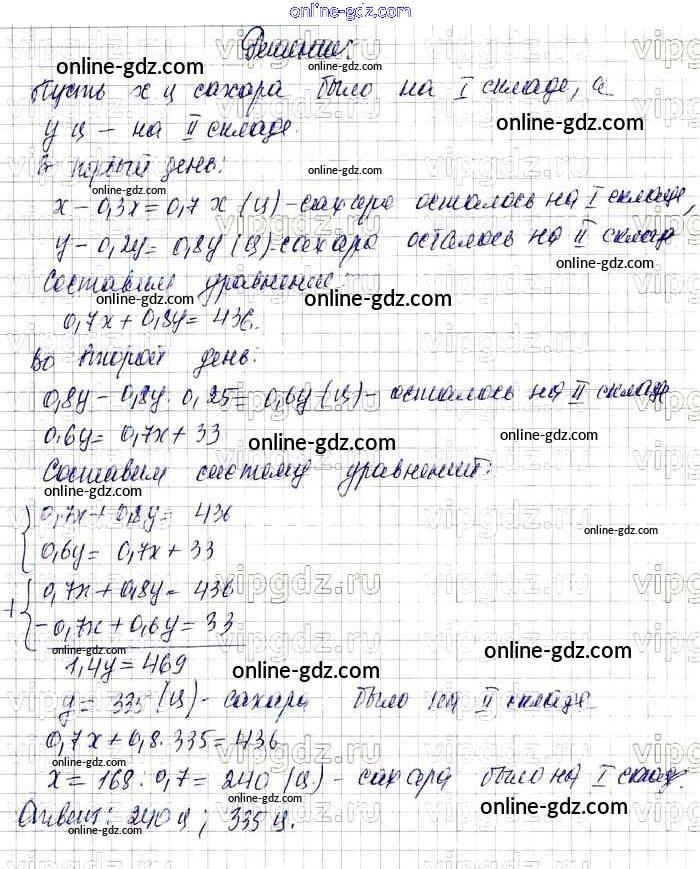 online-gdz.com
Решение:
online-gdz.com
Пусть x ц сахара было на I складе, а
online-gdz.com
y ц – на II складе.
В первый день:
online-gdz.com
x – 0,3x = 0,7x (ц) – сахара осталось на I складе,
y – 0,2y = 0,8y (ц) – сахара осталось на II складе
online-gdz.com
Составим уравнение:
online-gdz.com online-gdz.com
0,7x + 0,8y = 436.
Во второй день:
online-gdz.com
0,8y – 0,8y · 0,25 = 0,6y (ц) – осталось на II складе
online-gdz.com
0,6y = 0,7x + 33
online-gdz.com online-gdz.com
Составим систему уравнений:
online-gdz.com
0,7x + 0,8y = 436
online-gdz.com
0,6y = 0,7x + 33
vipgdz.ru
+ 0,7x + 0,8y = 436
– 0,7x + 0,6y = 33
online-gdz.com
1,4y = 469
online-gdz.com
y = 335 (ц) – сахара было на II складе
online-gdz.com
0,7x + 0,8 · 335 = 436
online-gdz.com
x = 168 : 0,7 = 240 (ц) – сахара было на I складе.
online-gdz.com
Ответ: 240 ц; 335 ц.
online-gdz.com
online-gdz.com